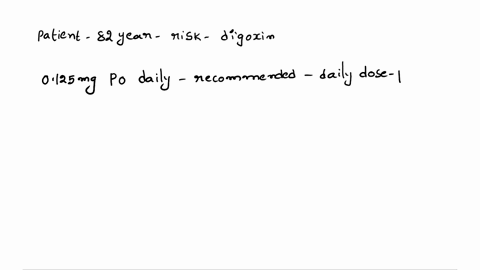 Patient - 82 year - risk - digoxin
0.125 mg PO daily - recommended - daily dose - |